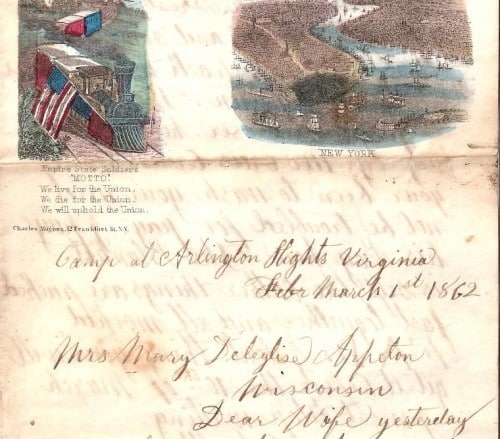 NEW YORK
Empire State Soldiers
MOTTO!
We live for the Union.
We die for the Union.
We will uphold the Union.
Charles Magnus, 12 Frankfort St. N.Y.
Camp at Arlington Hights Virginia
Febr March 1st 1862
Mrs. Mary Deleglise Appleton
Wisconsin
Dear Wife yesterday